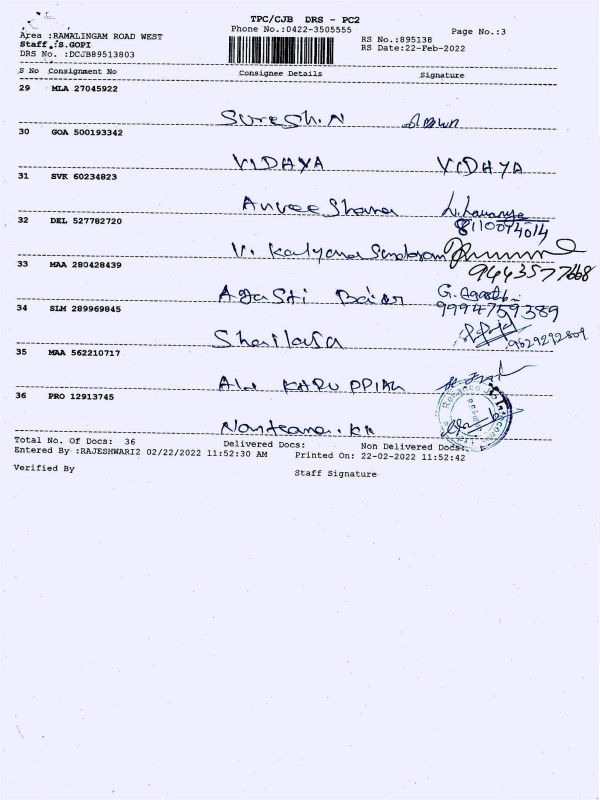 TPC/CJB DRS - PC2
Area :RAMALINGAM ROAD WEST Phone No.:0422-3505555 Page No.:3
Staff :S.GOPI RS No.:895138
DRS No. :DCJB89513803 RS Date:22-Feb-2022
S No Consignment No Consignee Details Signature
29 MLA 27045922
Suresh.N
30 GOA 500193342
VIDHYA VIDHYA
31 SVK 60234823
L.Lavanya
8110094014
32 DEL 527782720
V. Kalyana Sundaram
9443577668
33 MAA 280428439
Agasti G.Agasti
9994759389
34 SLM 289969845
Shailaja 9629292809
35 MAA 562210717
ALL KARUPPIAH
36 PRO 12913745
Total No. Of Docs: 36 Delivered Docs: Non Delivered Docs:
Entered By :RAJESHWARI2 02/22/2022 11:52:30 AM Printed On: 22-02-2022 11:52:42
Verified By Staff Signature